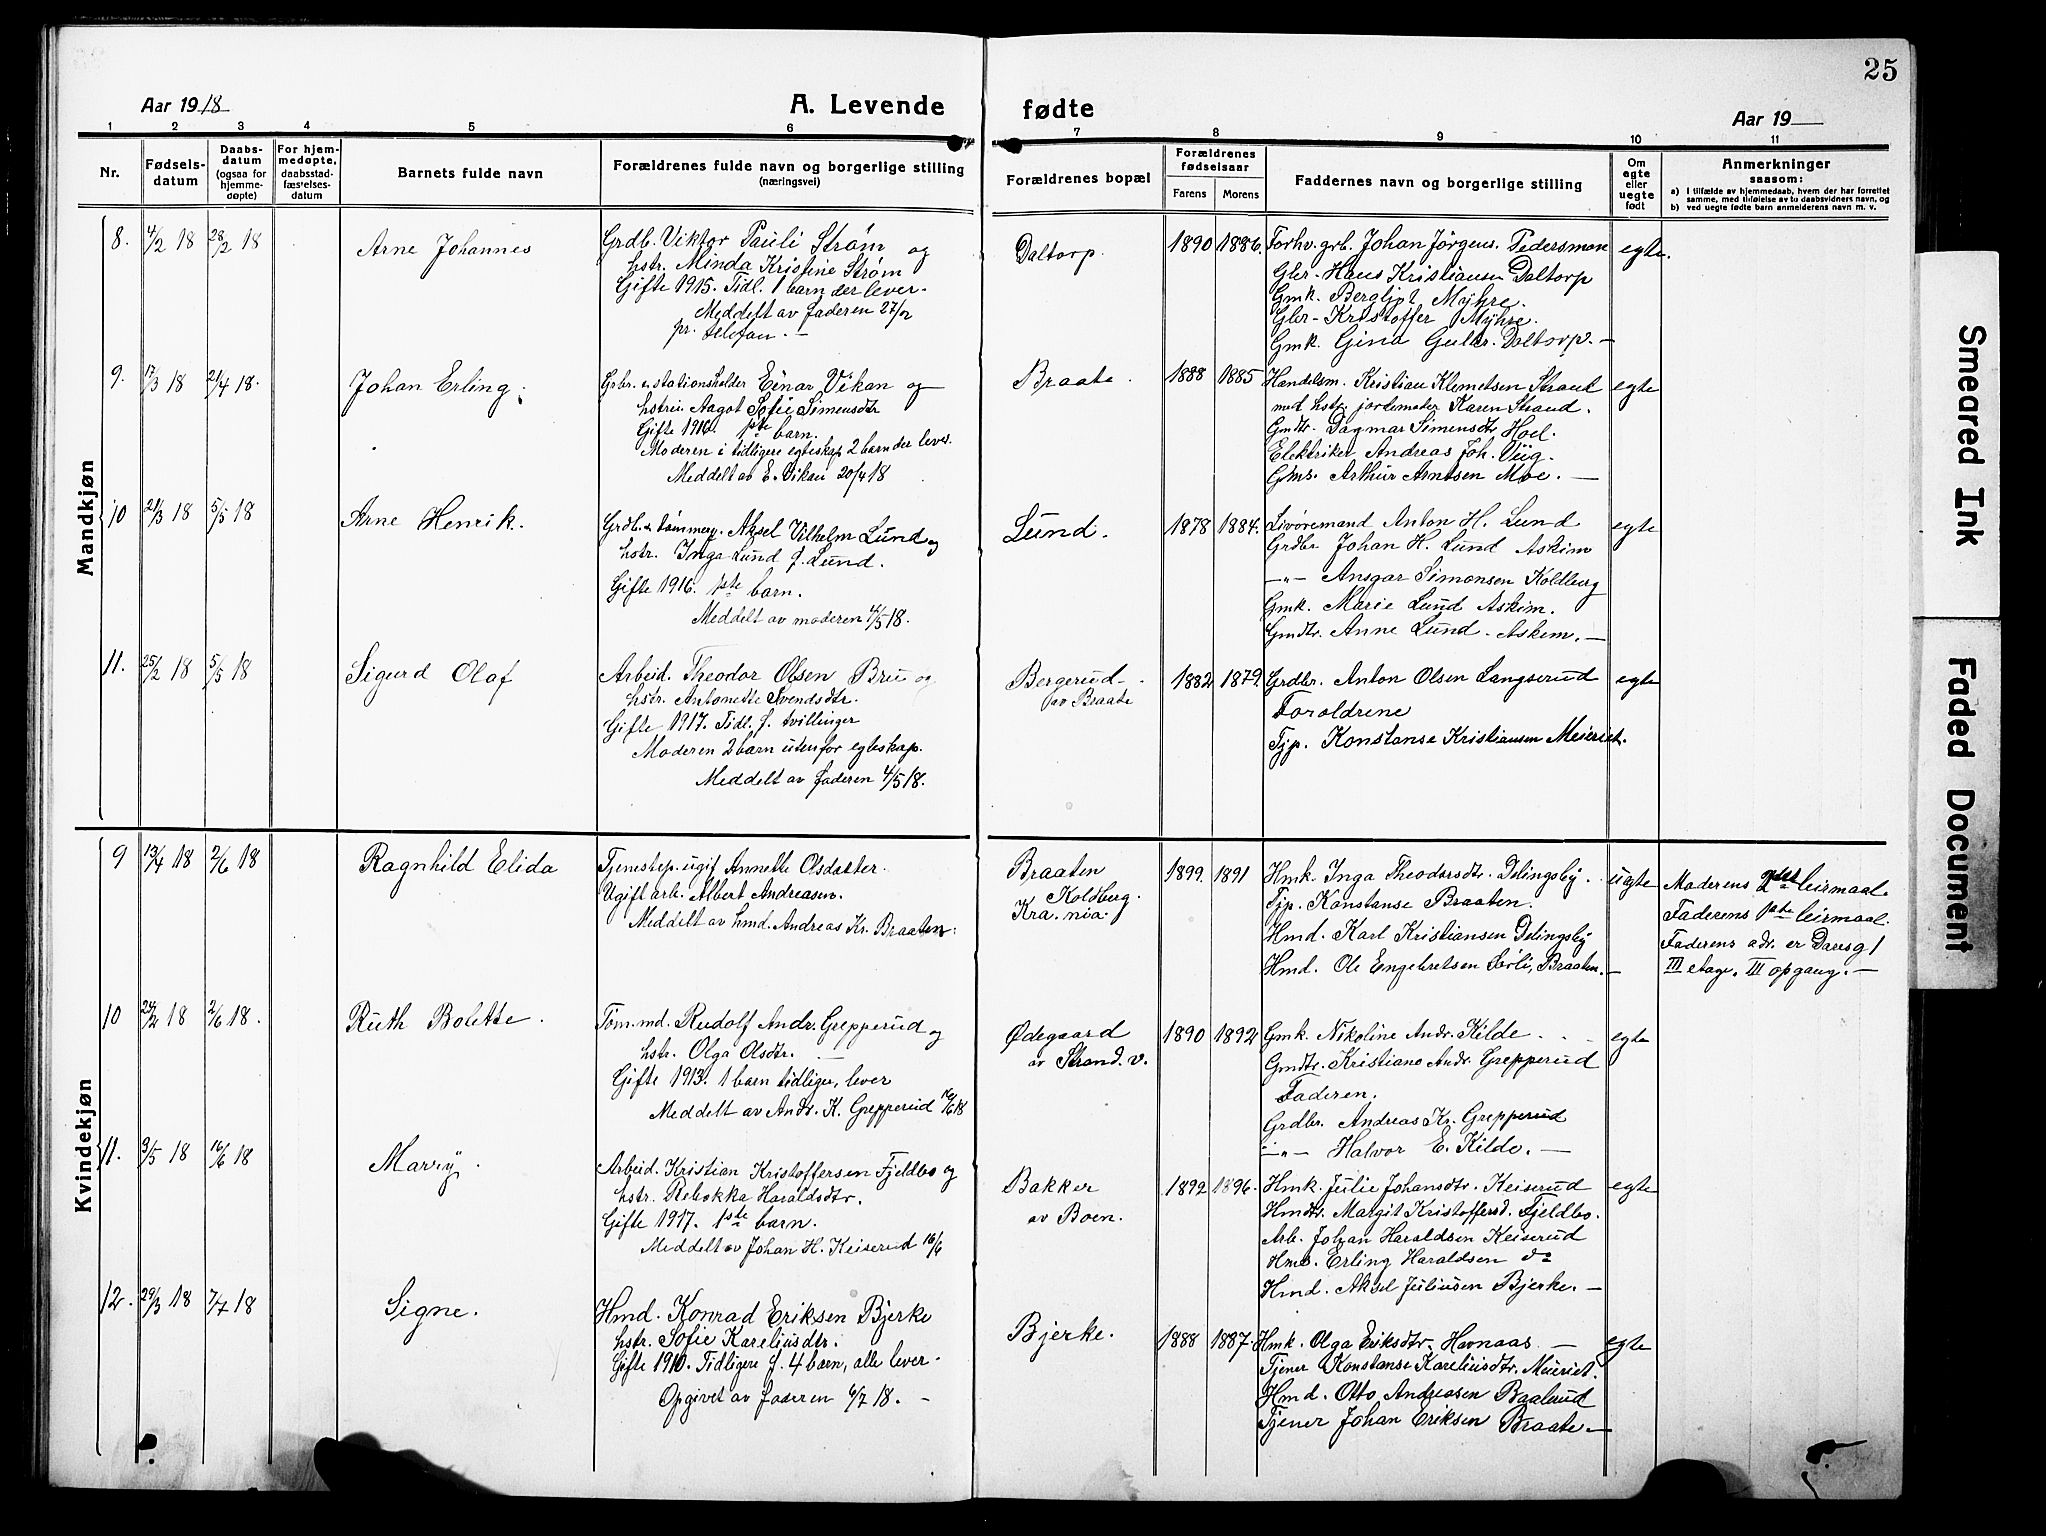 25
Aar 1918
A. Levende fødte
Aar 19
1 2 3 4 5 6 7 8 9 10 11
Nr.
Fødselsdatum
Daabsdatum (ogsaa for hjemmedøpte)
For hjemmedøpte, daabsstadfæstelsesdatum
Barnets fulde navn
Forældrenes fulde navn og borgerlige stilling
(næringsvei)
Forældrenes bopæl
Forældrenes fødselsaar
Farens
Morens
Faddernes navn og borgerlige stilling
Om egte eller uegte født
Anmerkninger
saasom:
a) I tilfælde av hjemmedaab, hvem der har forrettet samme, med tilføielse av to daabsvidners navn, og
b) ved uegte fødte barn anmelderens navn m. v.
Mandkjøn
8. 4/2 18 28/2 18 Arne Johannes
Grdb. Viktor Pauli Strøm og
hstr. Minda Kristine Strøm
Gifte 1915. Tidl. 1 barn der lever.
Meddelt av faderen 27/2
pr. telefon. —
Daltorp. 1890 1886.
Forhv. grb. Johan Jørgens. Pedersmoen
Gbr. Hans Kristiansen Daltorp
Gmk. Bergljot Myhre.
Gbr. Kristoffer Myhre.
Gmk. Gina Gulbr. Daltorp. —
egte.
9. 17/3 18 21/4 18. Johan Erling.
Grbr. & stationsholder Einar Vikan og
hstru Aagot Sofie Simensdtr
Gifte 1916. 1ste barn.
Moderen i tidligere egteskap 2 barn der lever.
Meddelt av E. Vikan 20/4 18
Braate. 1888 1885
Handelsm. Kristian Klemetsen Strand
med hstr. jordemoder Karen Strand.
Gmdtr. Dagmar Simensdtr Hoel.
Elektriker Andreas Joh. Viig.
Gms. Arthur Arntsen Moe. —
egte
10 21/3 18 5/5 18 Arne Henrik.
Grdb. & tømmerm. Aksel Vilhelm Lund og
hstr. Inga Lund f. Lund.
Gifte 1916. 1ste barn.
Meddelt av moderen 4/5 18.
Lund. 1878 1884.
Livøremand Anton H. Lund
Grdbr Johan H. Lund Askim
—"— Ansgar Simonsen Koldberg
Gmk. Marie Lund Askim.
Gmdtr. Anne Lund. Askim. —
egte
11. 25/2 18 5/5 18 Sigurd Olaf
Arbeid. Theodor Olsen Bru og
hstr. Antonette Svendsdtr.
Gifte 1917. Tidl. f. tvillinger
Moderen 2 barn utenfor egteskap.
Meddelt av faderen 4/5 18.
Bergerud
av Braate
1882 1879.
Grdbr. Anton Olsen Langserud
Foraldrene
Tjp. Konstanse Kristiansen Meieriet.
egte
Kvindekjøn
9 13/4 18 2/6 18 Ragnhild Elida
Tjenestep. ugif Annette Olsdatter.
Ugift arb. Albert Andreasen.
Meddelt av hmd. Andreas Kr. Braaten.
Braaten
Koldberg.
Kra.nia.
1899. 1891
Hmk. Inga Theodorsdtr. Delingsby.
Tjp. Konstanse Braaten.
Hmd. Karl Kristiansen Delingsby
Hmd. Ole Engebretsen Sørli, Braaten. —
uegte
Moderens 2det leirmaal.
Faderens 1ste leirmaal.
Faderens adr. er
III etage. III opgang. —
10 24/2 18 2/6 18. Ruth Bolette.
Tøm.md. Rudolf Andr. Grepperud og
hstr. Olga Olsdtr. —
Gifte 1913. 1 barn tidliger, lever
Meddelt av Andr. K. Grepperud 16/6 18
Ødegaard
av Strand. v.
1890 1892
Gmk. Nikoline Andr. Kilde.
Gmdtr. Kristiane Andr. Grepperud
Faderen.
Grdbr. Andreas Kr. Grepperud
—"— Halvor E. Kilde. —
egte
11. 3/5 18 16/6 18 Marry.
Arbeid. Kristian Kristoffersen Fjeldbo og
hstr. Rebekka Haraldsdtr.
Gifte 1917. 1ste barn.
Meddelt av Johan H. Keiserud 16/6
Bakker
av Boen.
1892 1896.
Hmk. Julie Johansdtr. Keiserud
Hmdtr. Margit Kristoffersd. Fjeldbo.
Arb. Johan Haraldsen Keiserud
Hms. Erling Haraldsen do
Hmd. Aksel Juliusen Bjerke. —
egte
12. 29/3 18 7/7 18 Signe.
Hmd. Konrad Eriksen Bjerke
hstr. Sofie Kareliusdtr.
Gifte 1910. Tidligere f. 4 barn, alle lever.
Opgivet av faderen 6/7 18. —
Bjerke. 1888 1887.
Hmk. Olga Eriksdtr. Havnaas —
Tjener Konstanse Kareliusdtr. Meieriet.
Hmd. Otto Andreasen Baalsrud
Tjener Johan Eriksen Braate —
egte
Smeared Ink
Faded Document